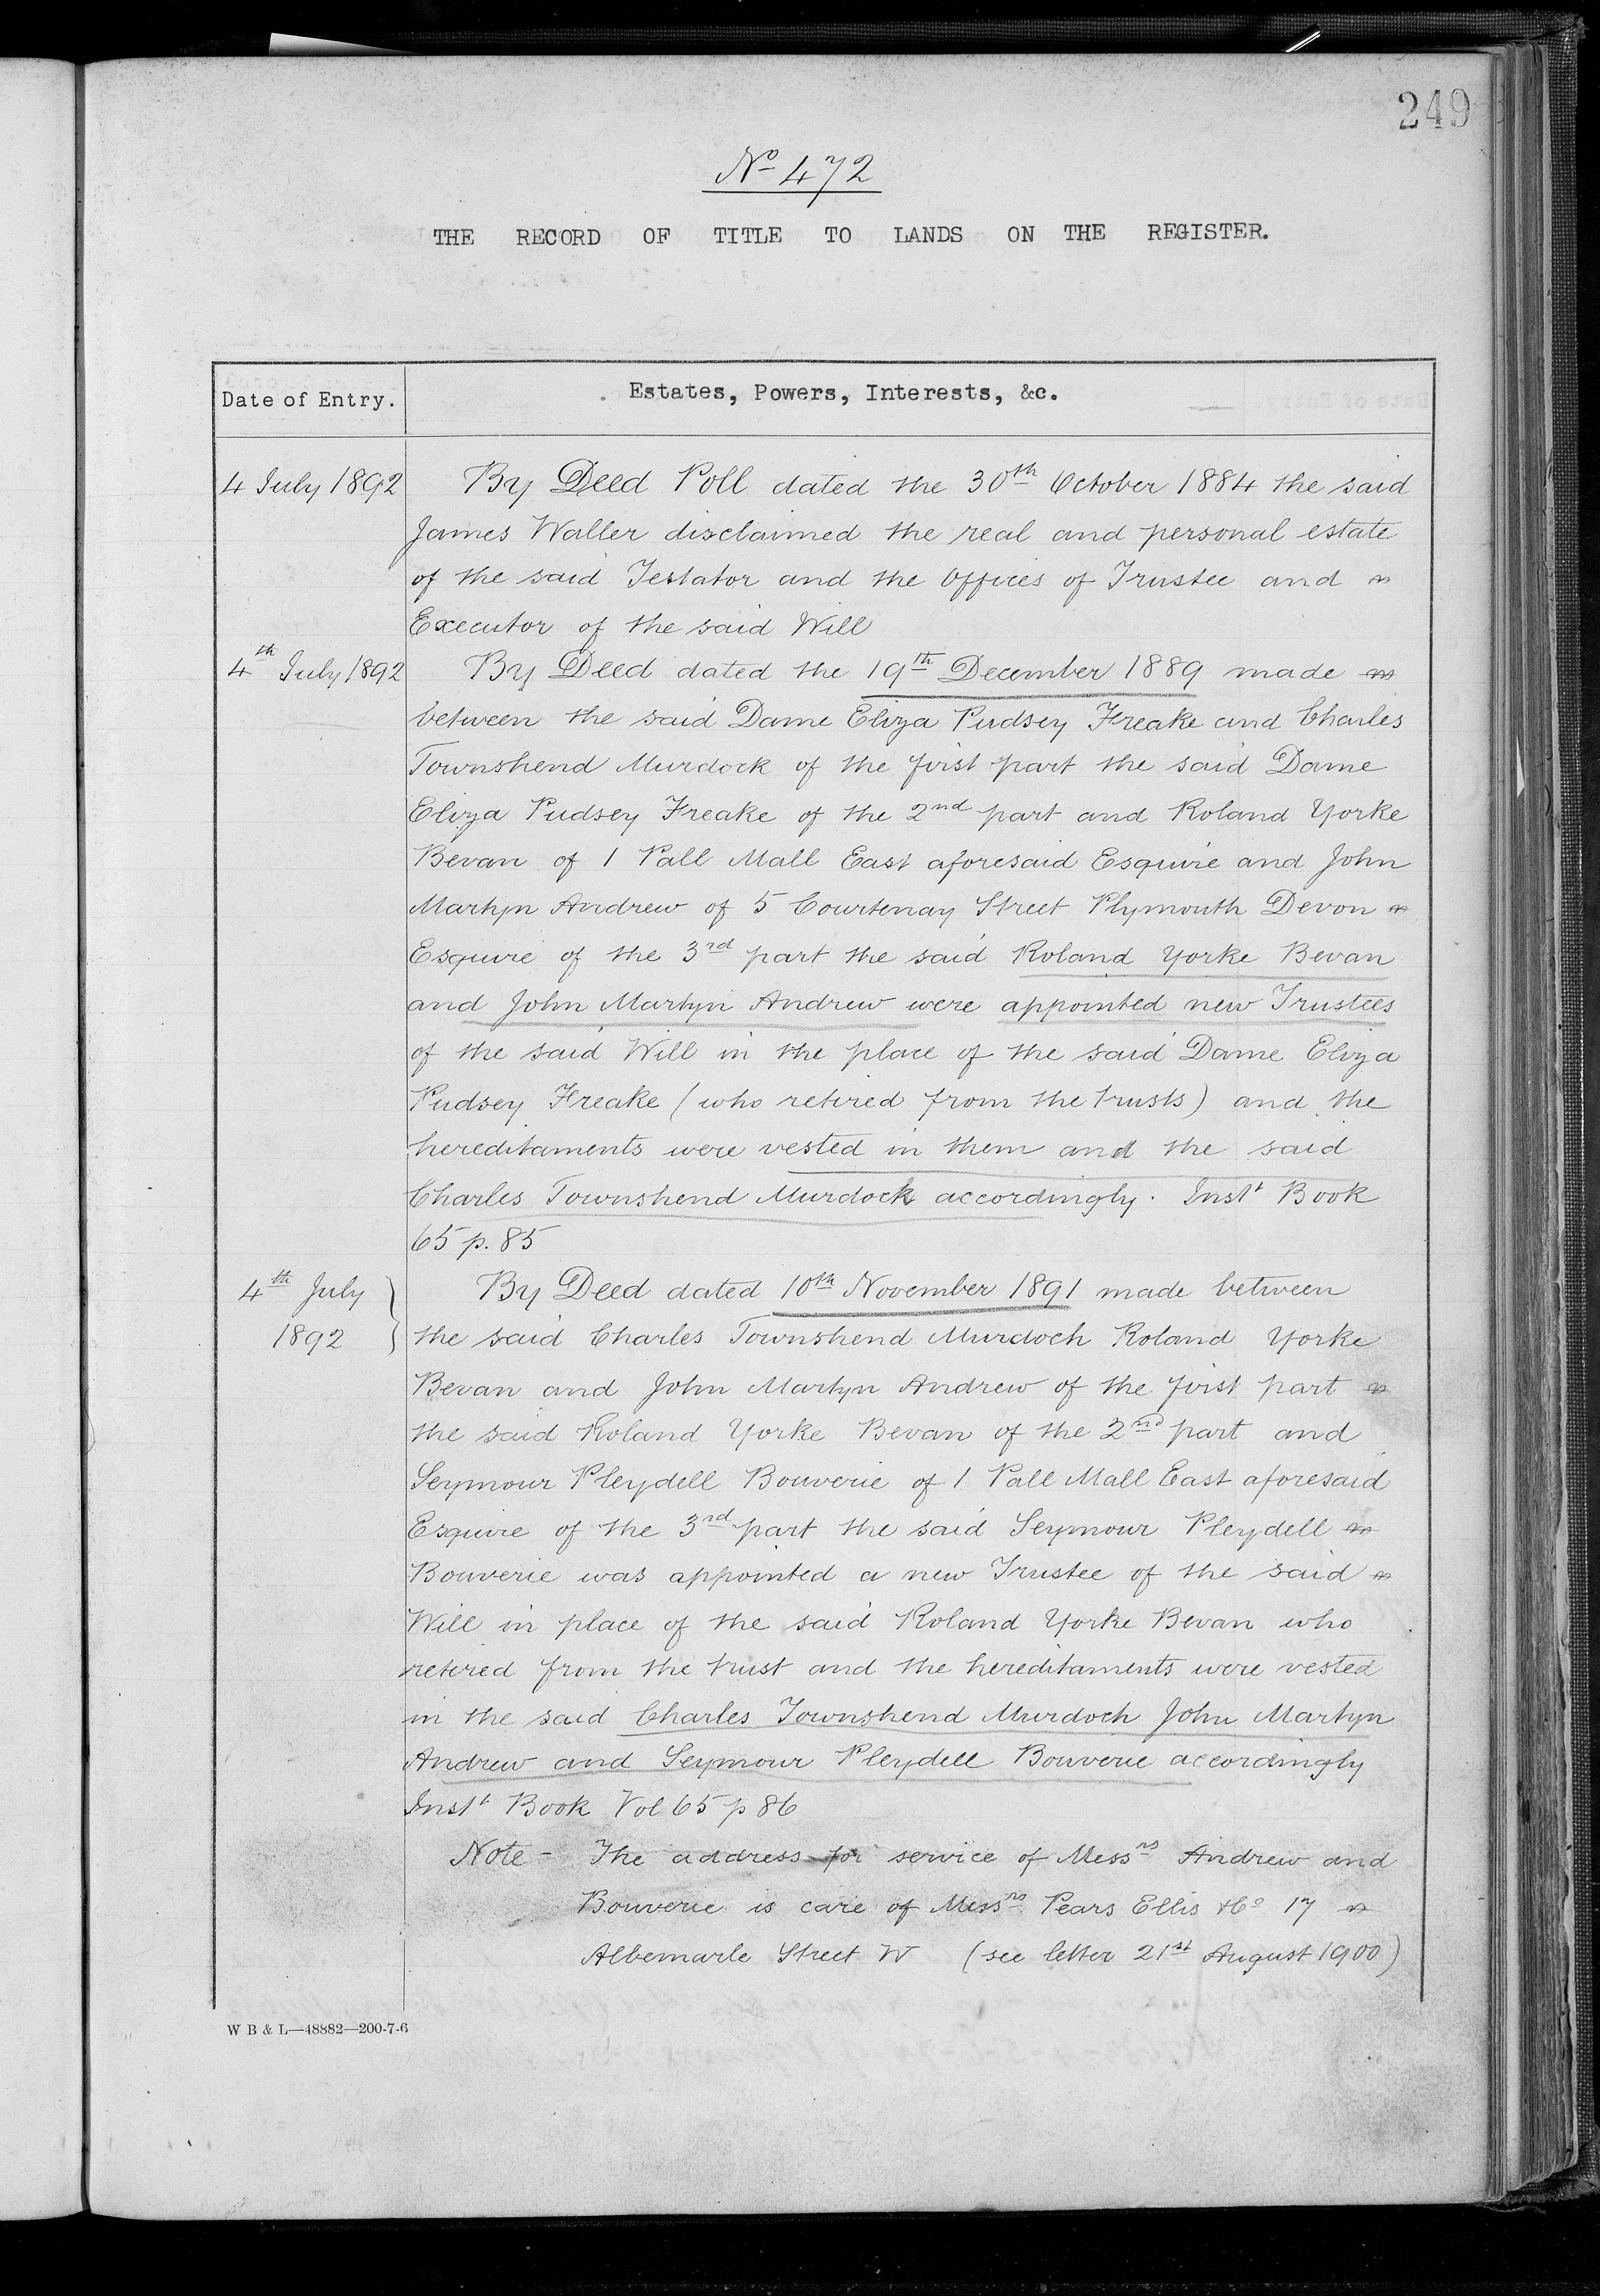 249
No 472
THE RECORD OF TITLE TO LANDS ON THE REGISTER.
Date of Entry.
Estates, Powers, Interests, &c.
4 July 1892
By Deed Poll dated the 30th October 1884 the said
James Waller disclaimed the real and personal estate
of the said Testator and the Offices of Trustee and
Executor of the said Will
4th July 1892
By Deed dated the 19th December 1889 made
between the said Dame Eliza Pudsey Freake and Charles
Townshend Murdock of the first part the said Dame
Eliza Pudsey Freake of the 2nd part and Roland Yorke
Bevan of 1 Pall Mall East aforesaid Esquire and John
Martyn Andrew of 5 Courtenay Street Plymouth Devon
Esquire of the 3rd part the said Roland Yorke Bevan
and John Martyn Andrew were appointed new Trustees
of the said Will in the place of the said Dame Eliza
Pudsey Freake (who retired from the trusts) and the
hereditaments were vested in them and the said
Charles Townshend Murdock accordingly. Instt Book
65 p. 85
4th July
1892
By Deed dated 10th November 1891 made between
the said Charles Townshend Murdoch Roland Yorke
Bevan and John Martyn Andrew of the first part
the said Roland Yorke Bevan of the 2nd part and
Seymour Pleydell Bouverie of 1 Pall Mall East aforesaid
Esquire of the 3rd part the said Seymour Pleydell
Bouverie was appointed a new Trustee of the said
Will in place of the said Roland Yorke Bevan who
retired from the trust and the hereditaments were vested
in the said Charles Townshend Murdoch John Martyn
Andrew and Seymour Pleydell Bouverie accordingly
Instt Book Vol 65 p 86
Note - The address for service of Messrs Andrew and
Bouverie is care of Messrs Pears Ellis & Co 17
Albemarle Street W (see letter 21st August 1900)
W B & L—48882—200-7-6